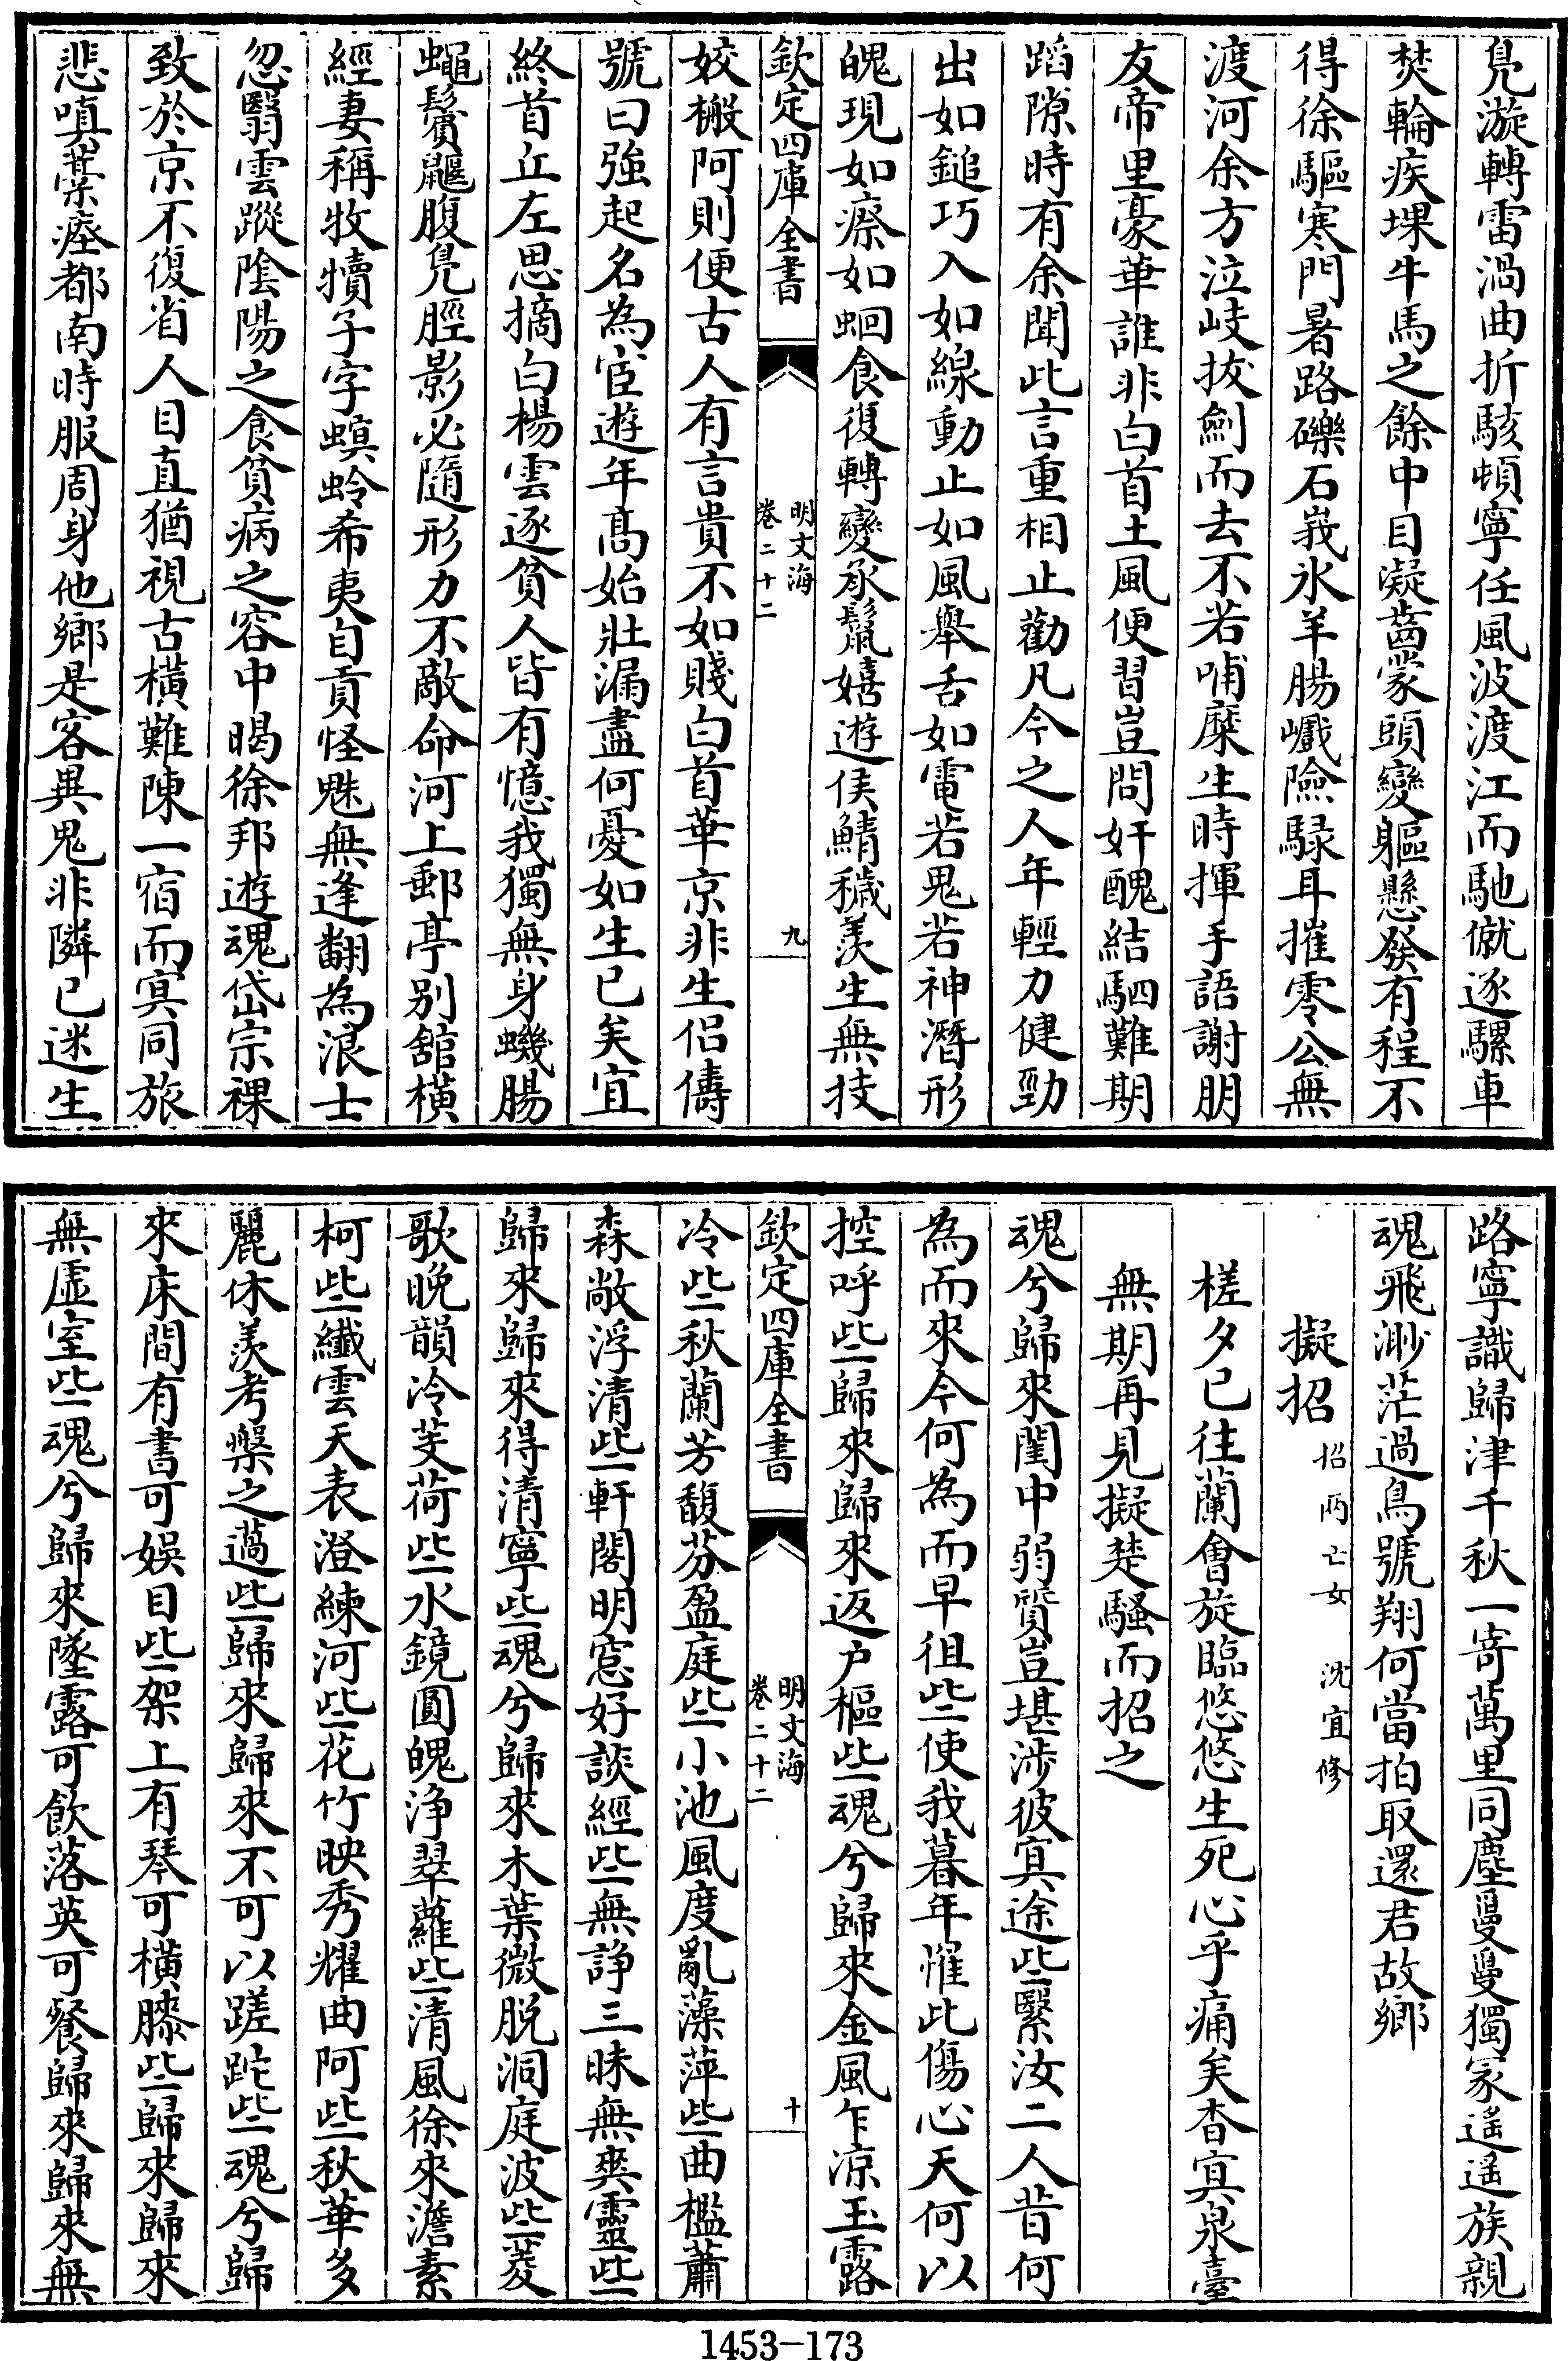 鳬漩轉雷渦曲折駭頓寧任風波渡江而馳僦逐騾車
焚輪疾堁牛馬之餘中目凝齒蒙頭變軀懸發有程不
得徐驅寒門暑路礫石峩氷羊腸巇險騄耳摧零公無
渡河余方泣岐拔劍而去不若哺糜生時揮手語謝朋
友帝里豪華誰非白首土風便習豈問奸醜結駟難期
蹈隙時有余聞此言重相止勸凡今之人年輕力健勁
出如鎚巧入如線動止如風舉舌如電若鬼若神潛形
醜現如瘵如蛔食復轉變承鬛嬉遊侯鯖穢羡生無技
欽定四庫全書
明文海
卷二十二
九
姣搬阿則便古人有言貴不如賤白首華京非生侣儔
號曰強起名為宦遊年髙始壯漏盡何憂如生已矣宜
終首丘左思摘白楊雲逐貧人皆有憶我獨無身蟣腸
蠅鬢鼴腹鳬脛影必隨形力不敵命河上郵亭别舘橫
經妻稱牧犢子字螟蛉希夷自貢怪魅無逢翻為浪士
忽翳雲蹤陰陽之食貧病之容中暍徐邦遊魂岱宗祼
致於京不復省人目直猶視古橫難陳一宿而㝠同旅
悲嗔藁瘞都南時服周身他鄉是客異鬼非隣已迷生
路寧識歸津千秋一寄萬里同塵㬅㬅獨冢遥遥族親
魂飛渺茫過鳥號翔何當拍取還君故鄉
擬招 招兩亡女 沈宜修
槎夕已往蘭㑹旋臨悠悠生死心乎痛矣杳㝠泉臺
無期再見擬楚騷而招之
魂兮歸來閨中弱質豈堪涉彼㝠途些繄汝二人昔何
為而來今何為而早徂些使我暮年罹此傷心天何以
控呼些歸來歸來返户樞些魂兮歸來金風乍凉玉露
欽定四庫全書
明文海
卷二十二
十
冷些秋蘭芳馥芬盈庭些小池風度亂藻萍些曲檻蕭
森敞浮清些軒閣明窓好談經些無諍三昧無爽靈些
歸來歸來得清寧些魂兮歸來木葉微脱洞庭波些菱
歌晩韻冷芰荷些水鏡圓魄浄翠蘿些清風徐來澹素
柯些纖雲天表澄練河些花竹映秀耀曲阿些秋華多
麗休羡考槃之薖些歸來歸來不可以蹉跎些魂兮歸
來床間有書可娯目些架上有琴可橫膝些歸來歸來
無虚室些魂兮歸來墜露可飲落英可餐歸來歸來無
1453-173